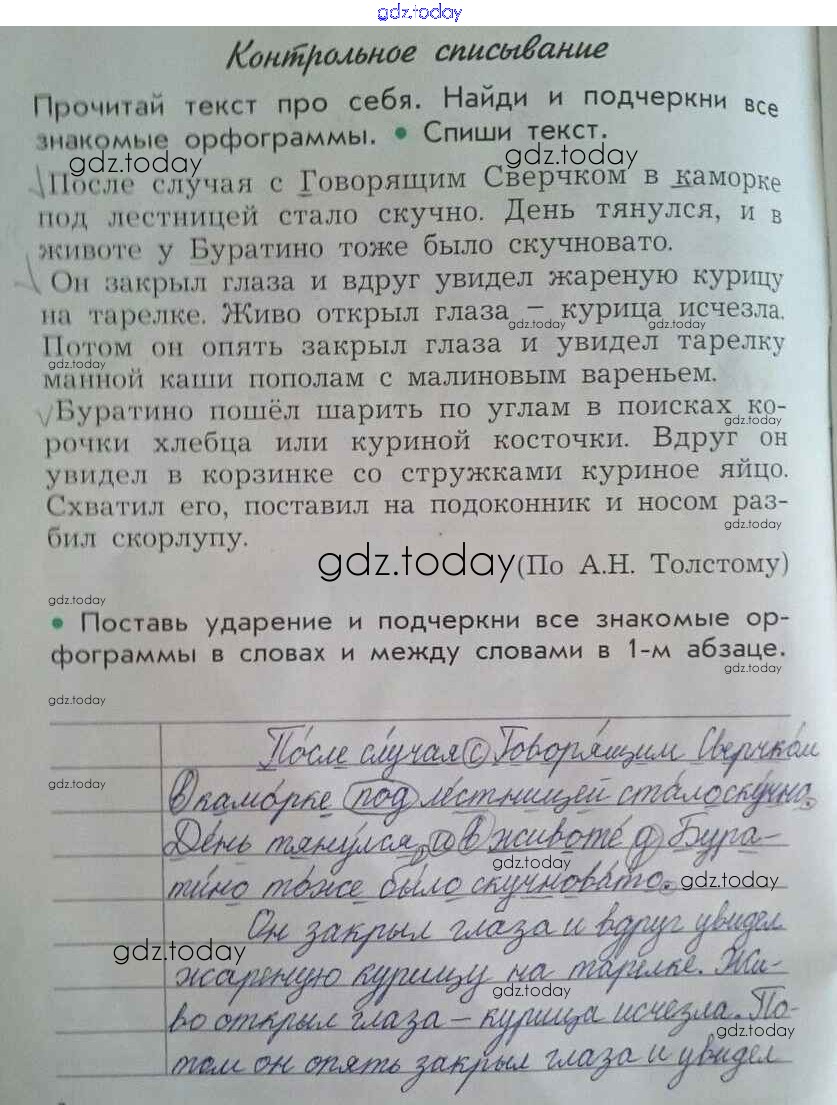 gdz.today
Контрольное списывание
Прочитай текст про себя. Найди и подчеркни все
знакомые орфограммы. • Спиши текст.
gdz.today gdz.today
После случая с Говорящим Сверчком в каморке
под лестницей стало скучно. День тянулся, и в
животе у Буратино тоже было скучновато.
Он закрыл глаза и вдруг увидел жареную курицу
на тарелке. Живо открыл глаза – курица исчезла.
gdz.today gdz.today
Потом он опять закрыл глаза и увидел тарелку
gdz.today
манной каши пополам с малиновым вареньем.
Буратино пошёл шарить по углам в поисках ко-
gdz.today
рочки хлебца или куриной косточки. Вдруг он
увидел в корзинке со стружками куриное яйцо.
Схватил его, поставил на подоконник и носом раз-
gdz.today
бил скорлупу.
gdz.today
(По А.Н. Толстому)
gdz.today
• Поставь ударение и подчеркни все знакомые ор-
фограммы в словах и между словами в 1-м абзаце.
gdz.today
gdz.today
По́сле слу́чая с Говоря́щим Сверчко́м
gdz.today
в камо́рке под ле́стницей ста́ло ску́чно.
Де́нь тяну́лся, и в животе́ у Бура-
gdz.today
ти́но то́же бы́ло скучнова́то.
gdz.today
Он закрыл глаза и вдруг увидел
gdz.today
жареную курицу на тарелке. Жи-
gdz.today
во открыл глаза – курица исчезла. По-
gdz.today
том он опять закрыл глаза и увидел